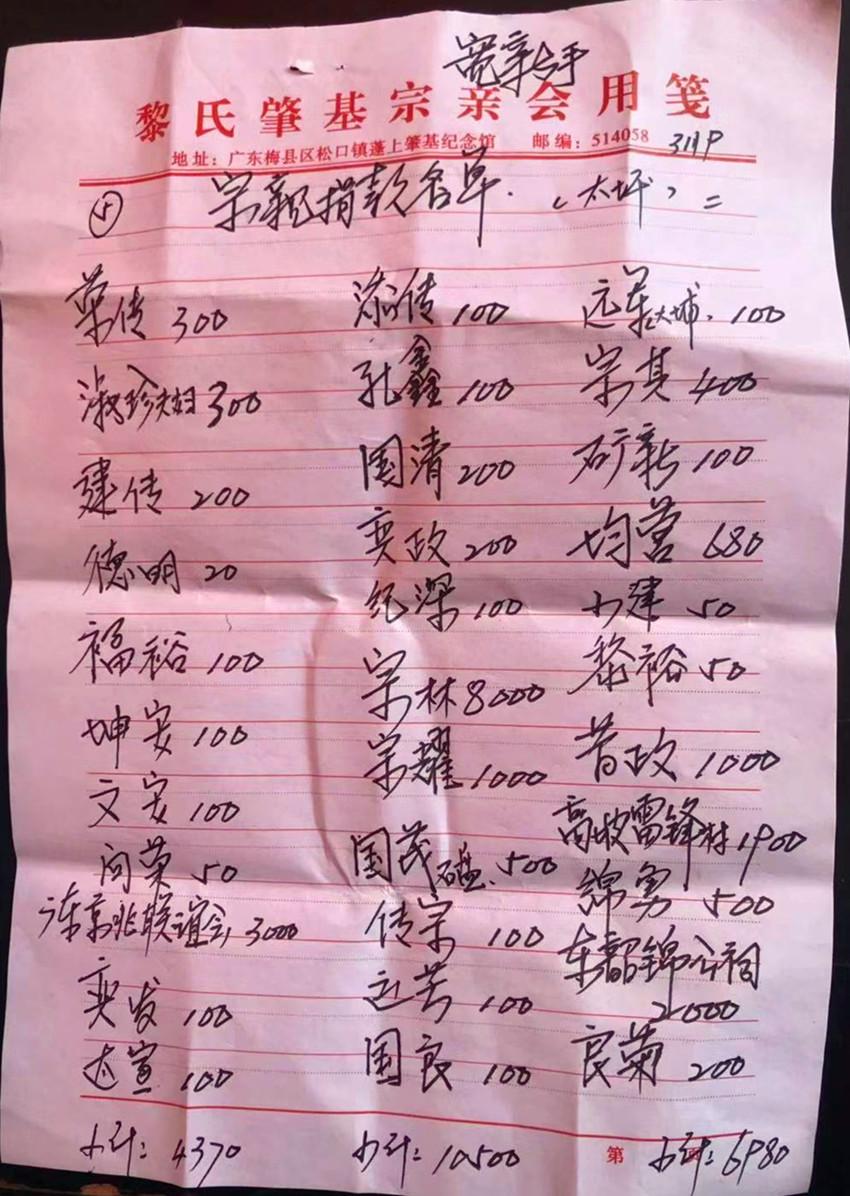 宽亲台手
黎氏肇基宗亲会用笺
地址：广东梅县区松口镇蓬上肇基纪念馆 邮编：514058
⑤ 宗亲捐款名单.（太坪）二
荣传 300
淑珍夫妇 300
建传 200
德明 20
福裕 100
坤宏 100
文宏 100
向荣 50
广东京兆联谊会 3000
奕发 100
达宣 100
小计：4370
添传 100
孔鑫 100
国清 200
奕政 200
纪深 100
宗林 8000
宗耀 1000
国茂 500
传宗 100
远芳 100
国良 100
小计：10500
远荣 大埔. 100
宗其 400
矿新 100
均营 680
小建 50
黎裕 50
首政 1000
高坡雷锋村 1900
绵勇 500
东韶锦公祠
2000
良菊 200
第 小计：6980